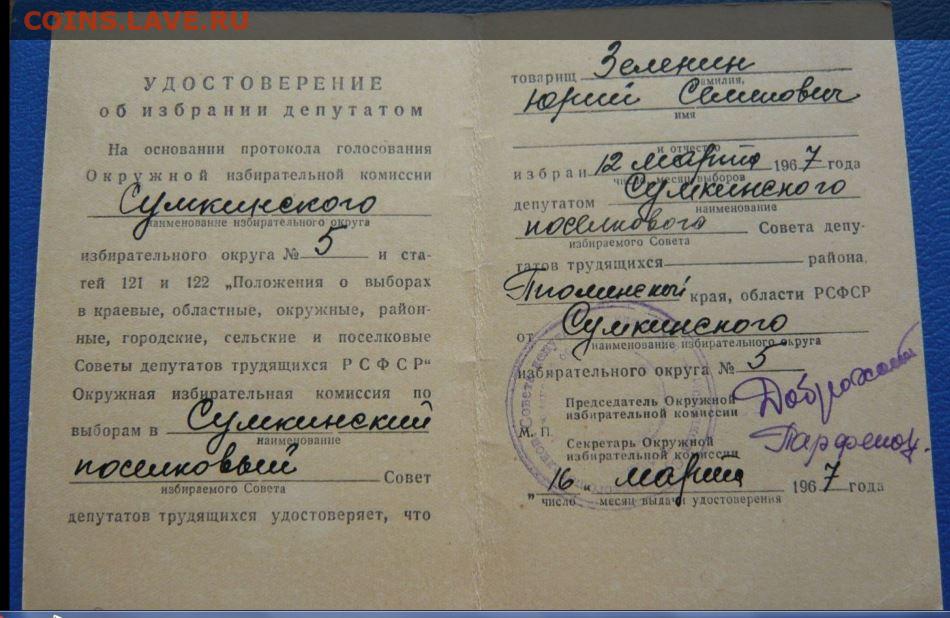 COINS.LAVE.RU
УДОСТОВЕРЕНИЕ
об избрании депутатом
На основании протокола голосования
Окружной избирательной комиссии
Сумкинского
наименование избирательного округа
избирательного округа № 5 и ста-
тей 121 и 122 „Положения о выборах
в краевые, областные, окружные, район-
ные, городские, сельские и поселковые
Советы депутатов трудящихся РСФСР“
Окружная избирательная комиссия по
выборам в Сумкинский
наименование
поселковый Совет
избираемого Совета
депутатов трудящихся удостоверяет, что
товарищ Зеленин
фамилия,
Юрий Семенович
имя
и отчество
избран 12 марта 1967 года
число, месяц выборов
депутатом Сумкинского
наименование
поселкового Совета депу-
избираемого Совета
татов трудящихся района,
Тюменской края, области РСФСР
от Сумкинского
наименование избирательного округа
избирательного округа № 5
Председатель Окружной
избирательной комиссии
М. П.
Секретарь Окружной
избирательной комиссии
„16“ марта 1967 года
число месяц выдачи удостоверения